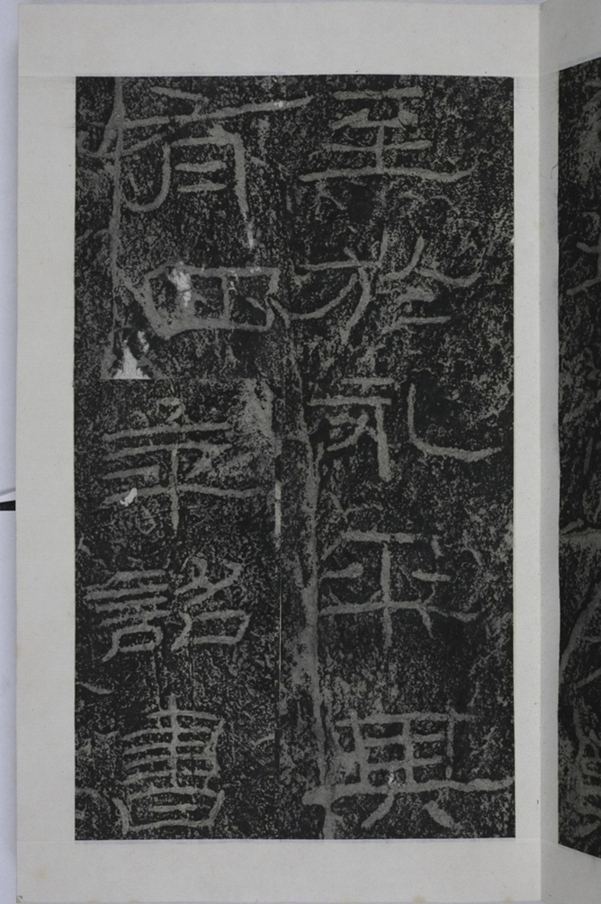 至於永平其
有四年詔書